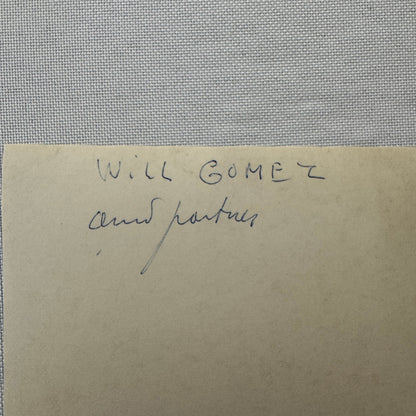 Will GOMEZ
and partner